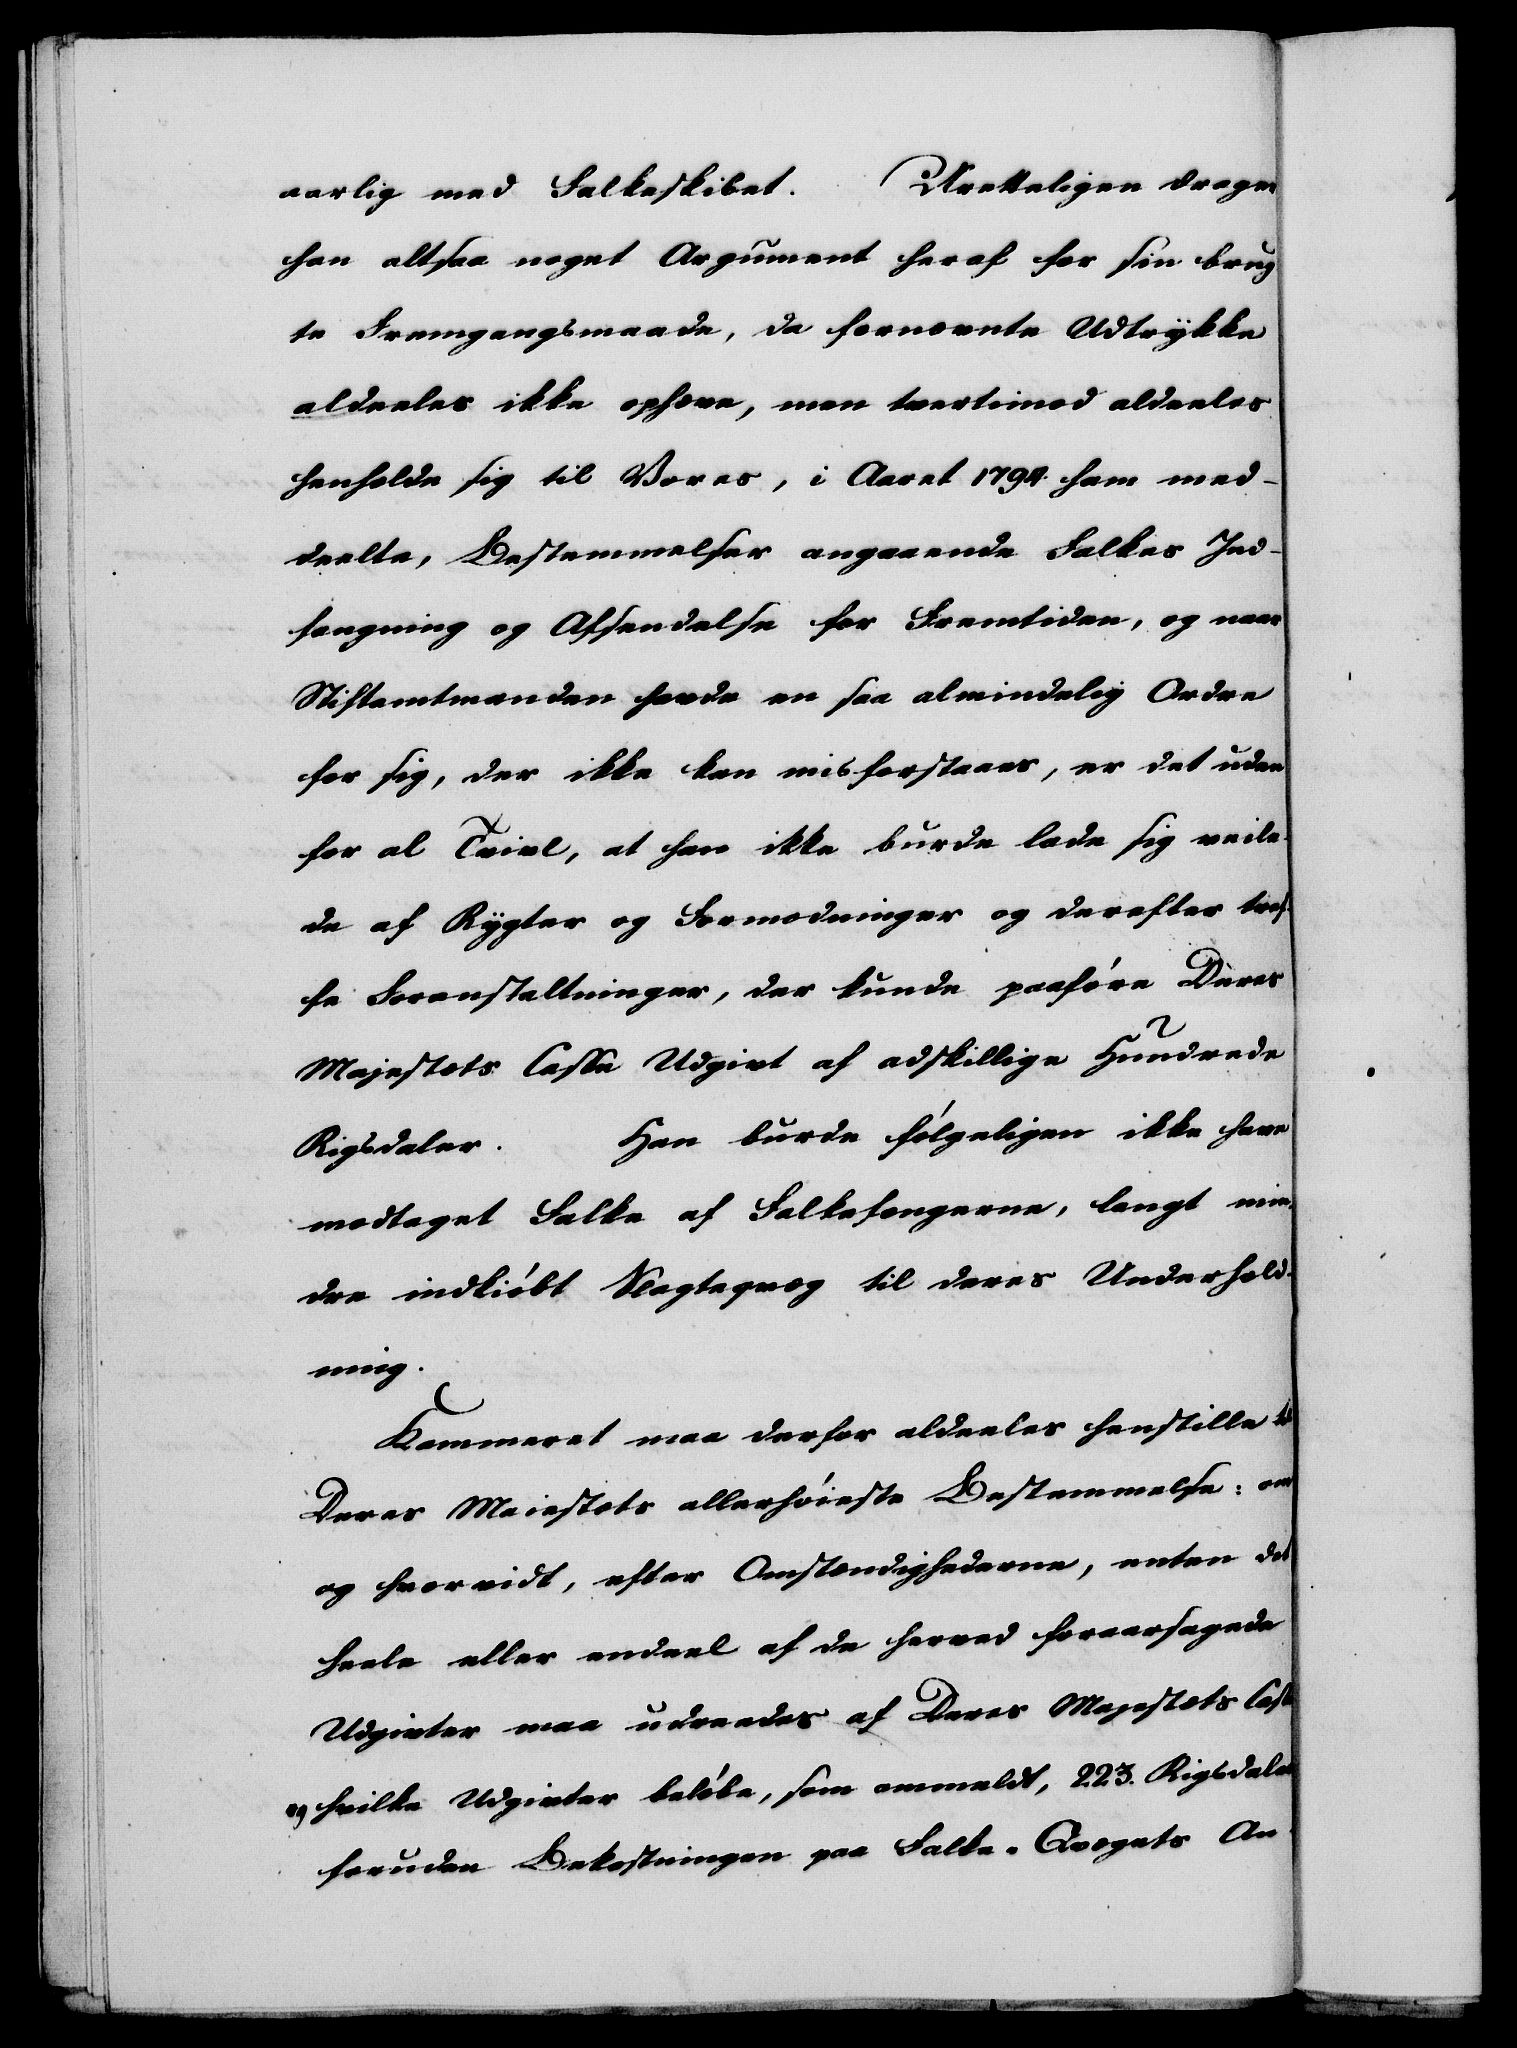 aarlig med Falkeskibet. Uretteligen drager
han altsaa noget Argument heraf for sin brug
te Fremgangsmaade, da fornævnte Udtrykke
aldeeles ikke ophæve, men tvertimod aldeeles
henholde sig til Vores, i Aaret 1794. ham med-
deelte, Bestemmelser angaaende Falkes Ind-
fangning og Afsendelse for Fremtiden, og naar
Stiftamtmanden havde en saa almindelig Ordre
for sig, der ikke kan misforstaaes, er det uden
for al Tvivl, at han ikke burde lade sig veile-
de af Rygter og Formodninger og derefter tref-
fe Foranstaltninger, der kunde paaføre Deres
Majestæts Casse Udgivt af adskillige Hundrede
Rigsdaler. Han burde følgeligen ikke have
modtaget Falke af Falkefængerne, langt min-
dre indkiøbt Slagteqvæg til deres Underhold-
ning.
Kammeret maa derfor aldeeles henstille til
Deres Maiestæts allerhøieste Bestemmelse: om
og hvorvidt, efter Omstændighederne, enten det
heele eller endeel af de herved foraarsagede
Udgivter maa udreedes af Deres Majestæts Casse
hvilke Udgivter beløbe, som ommeldt, 223. Rigsdaler
foruden Bekostningen paa Falke-Qvægets An-